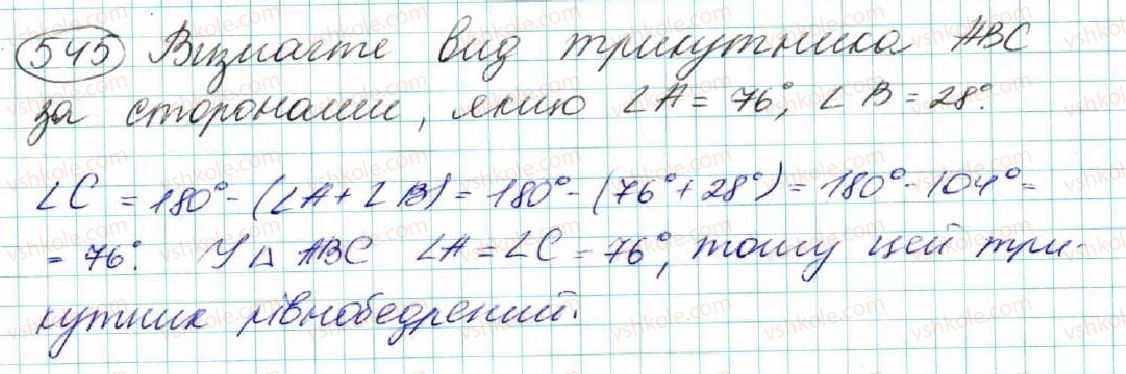 545 Визначте вид трикутника ABC
за сторонами, якщо ∠A = 76°, ∠B = 28°.
∠C = 180° - (∠A + ∠B) = 180° - (76° + 28°) = 180° - 104° =
= 76°. У Δ ABC ∠A = ∠C = 76°, тому цей три-
кутник рівнобедрений.